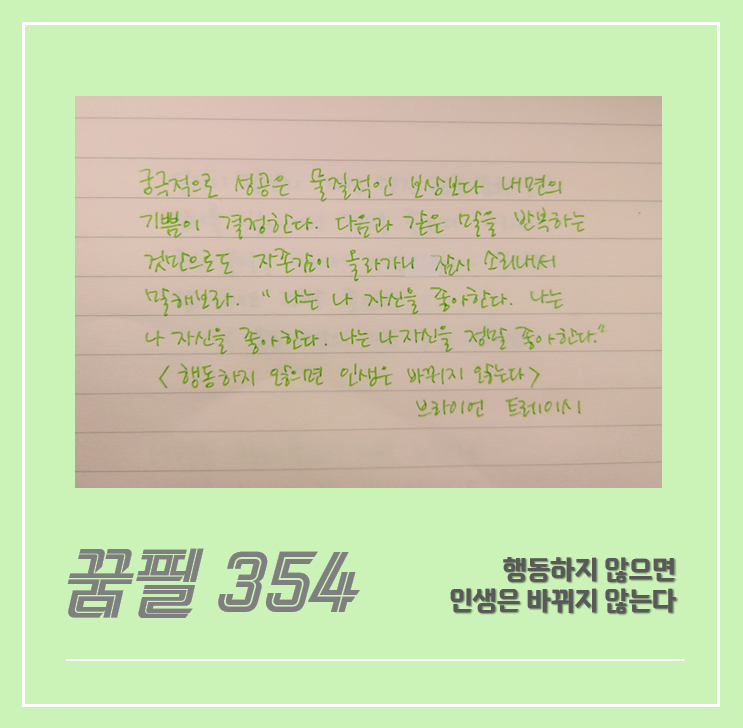 궁극적으로 성공은 물질적인 보상보다 내면의
기쁨이 결정한다. 다음과 같은 말을 반복하는
것만으로도 자존감이 올라가니 잠시 소리내서
말해보라. "나는 나 자신을 좋아한다. 나는
나 자신을 좋아한다. 나는 나 자신을 정말 좋아한다."
<행동하지 않으면 인생은 바뀌지 않는다>
브라이언 트레이시
꿈필 354
행동하지 않으면
인생은 바뀌지 않는다